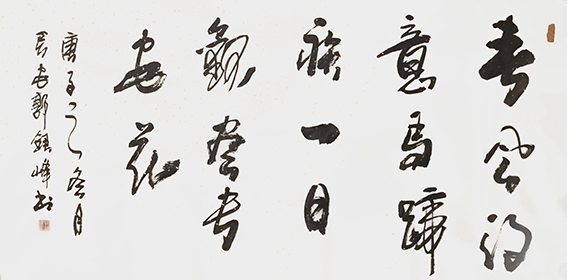 春风得
意马蹄
疾一日
觀尽长
安花
庚子之冬月
长安郭鎮峰书